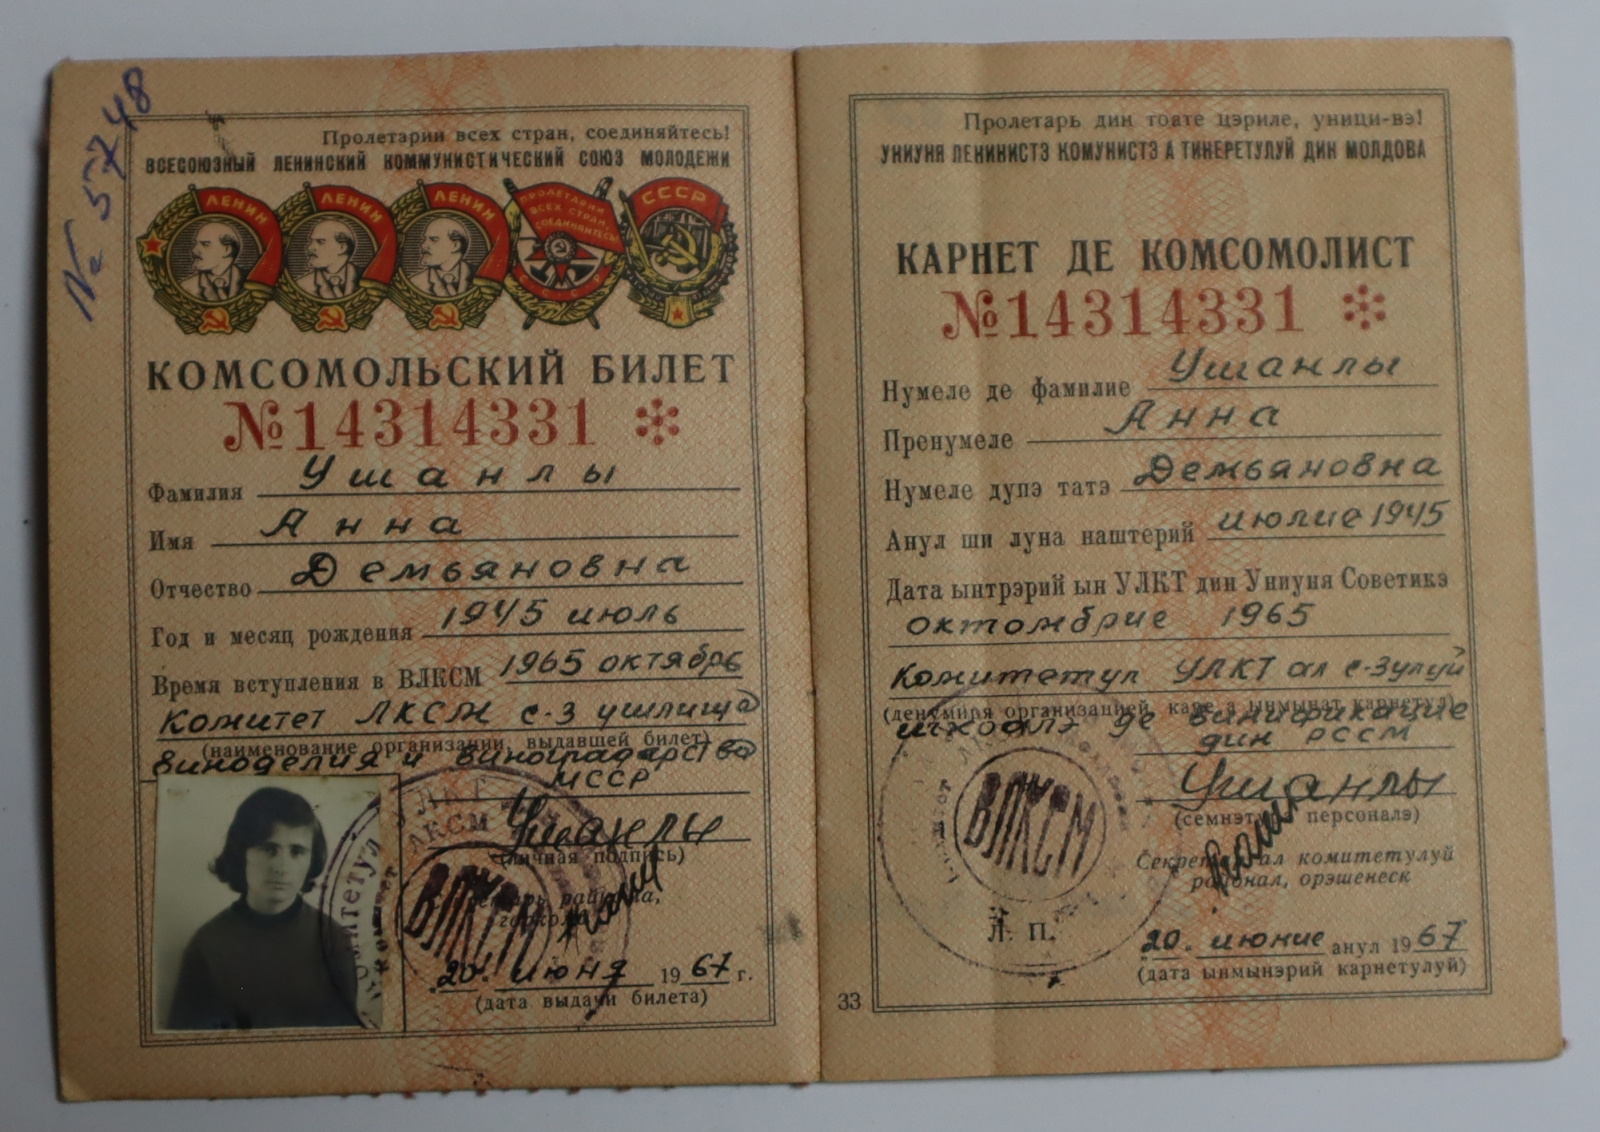 № 5748
Пролетарии всех стран, соединяйтесь!
ВСЕСОЮЗНЫЙ ЛЕНИНСКИЙ КОММУНИСТИЧЕСКИЙ СОЮЗ МОЛОДЕЖИ
ЛЕНИН ЛЕНИН ЛЕНИН
ПРОЛЕТАРИИ ВСЕХ СТРАН, СОЕДИНЯЙТЕСЬ!
СССР
СССР
КОМСОМОЛЬСКИЙ БИЛЕТ
№14314331
Фамилия Ушанлы
Имя Анна
Отчество Демьяновна
Год и месяц рождения 1945 июль
Время вступления в ВЛКСМ 1965 октябрь
Комитет ЛКСМ с-з училища
(наименование организации, выдавшей билет)
виноделия и виноградарства
МССР
Ушанлы
(личная подпись)
ВЛКСМ
20. июня 1967 г.
(дата выдачи билета)
Пролетарь дин тоате цэриле, уници-вэ!
УНИУНЯ ЛЕНИНИСТЭ КОМУНИСТЭ А ТИНЕРЕТУЛУЙ ДИН МОЛДОВА
КАРНЕТ ДЕ КОМСОМОЛИСТ
№14314331
Нумеле де фамилие Ушанлы
Пренумеле Анна
Нумеле дупэ татэ Демьяновна
Анул ши луна наштерий июлие 1945
Дата ынтрэрий ын УЛКТ дин Униуня Советикэ
октомбрие 1965
Комитетул УЛКТ ал с-зулуй
(денумиря организацией, каре а ынмынат карнетул)
шкоалэ де винификацие
дин РССМ
Ушанлы
(семнэтура персоналэ)
Секретар ал комитетулуй
районал, орэшенеск
ВЛКСМ
Л. П.
20. июние анул 1967
(дата ынмынэрий карнетулуй)
33